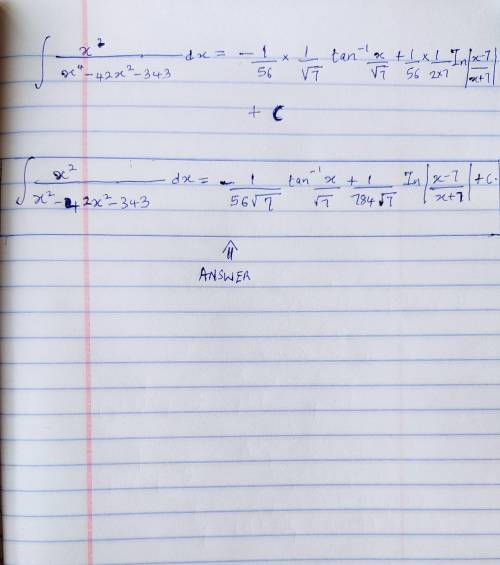 ∫ x² / (x⁴ - 42x² - 343) dx = - 1/56 × 1/√7 tan⁻¹ x/√7 + 1/56 × 1/(2×7) In |(x-7)/(x+7)|
+ C
∫ x² / (x² - 42x² - 343) dx = - 1/(56√7) tan⁻¹ x/√7 + 1/(784√7) In |(x-7)/(x+7)| + C.
⇑
ANSWER